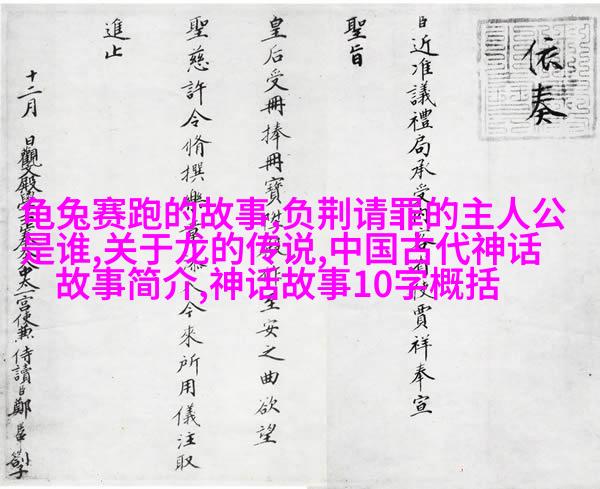 龟兔赛跑的故事,负荆请罪的主人公
是谁,关于龙的传说,中国古代神话
故事简介,神话故事10字概括
依奏
臣近准議禮局承受使賈祥奉宣
聖旨
皇后受冊捧冊寶安之曲欲望
聖慈許令脩撰樂今來所用儀注取
進止
十二月 日觀文殿學士太一宮使兼侍讀臣鄭